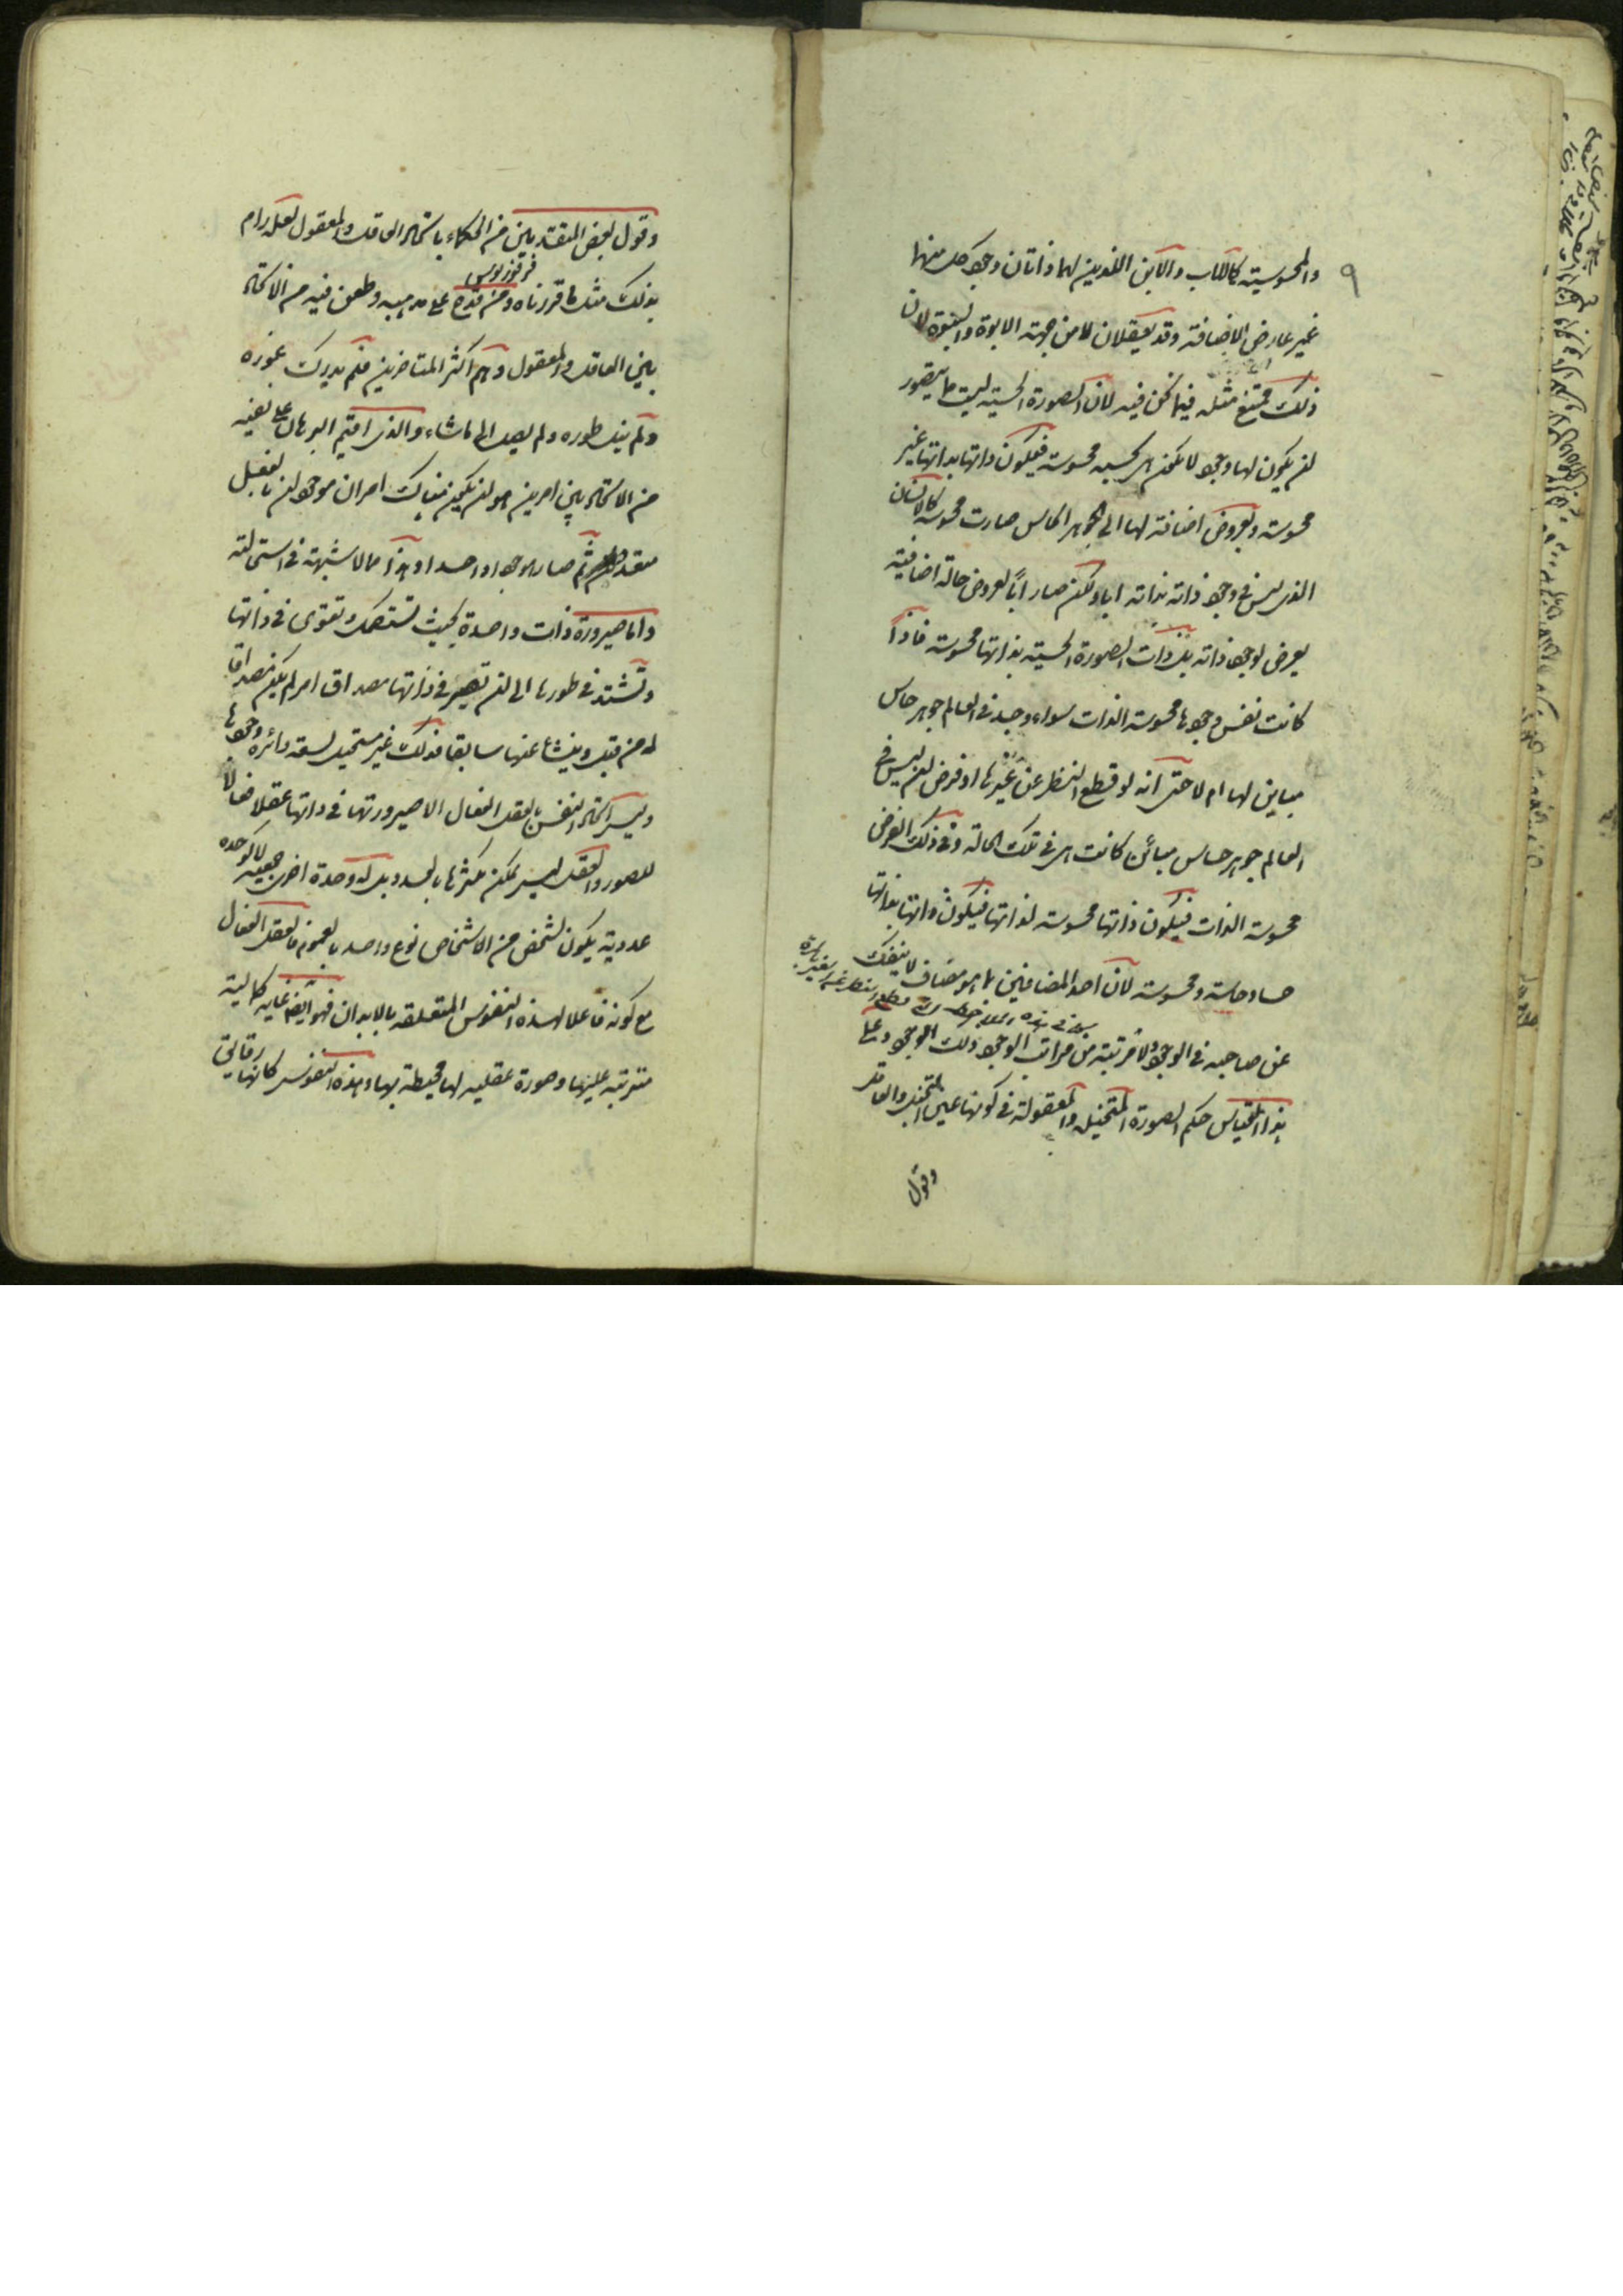 ٩
والمحسوسية كالاب والابن اللذين لهما ذاتان وجود كل منهما
غير عارض الاضافة وقد يعقلان لا من جهة الابوة والبنوة لان
ذلك ممتنع مثله فيما نحن فيه لان الصورة الحسية ليست مما يتصور
لن يكون لها وجود لا يكون هى بحسبه محسوسة فيكون ذاتها بذاتها غير
محسوسة وبعروض اضافة لها الى الجوهر الحاس صارت محسوسة كالانسان
الذى ليس فى وجود ذاته بذاته ابا ولكن صار اباً لعروض حالة اضافية
يعرض لوجود ذاته بل ذات الصورة الحسية بذاتها محسوسة فاذاً
كانت نفس وجودها محسوسة الذات سواء وجد فى العالم جوهر حاس
مباين لها ام لا حتى انه لو قطع النظر عن غيرها او فرض لن ليس فى
العالم جوهر حساس مبائن كانت هى فى تلك الحالة وفى ذلك الفرض
محسوسة الذات فيكون ذاتها محسوسة لذاتها فيكون ذاتها بذاتها
حسا وحاسة ومحسوسة لان احد المضافين بما هو مضاف لا ينفك
عن صاحبه فى الوجود ولا فى مرتبة من مراتب الوجود ذلك الوجود وعلى
هذا القياس حكم الصورة المتخيلة والمعقولة فى كونها عين المتخيل والعاقل
وقول
وقول بعض المتقدمين من الحكماء باتحاد العاقل والمعقول لعله رام
فرفوريوس
بذلك مثل ما قررناه ومن قدح على مذهبه وطعن فيه من الاتحاد
بين العاقل والمعقول وهم اكثر المتاخرين فلم يدرك غوره
ولم ينل طوره ولم يصل الى ما شاء والذى اقيم البرهان على نفيه
من الاتحاد بين امرين هو لن يكون هناك امران موجودان بالفعل
متعددان ثم صار موجودا واحدا وهذا مما لا شبهة فى استحالته
واما صيرورة ذات واحدة بحيث تستكمل وتقوى فى ذاتها
وتشتد فى طورها الى لن تصير فى ذاتها مصداق امر لم يكن مصداقا
له من قبل وينشأ عنها سابقا فذلك غير مستحيل لسعة دائرة وجودها
وليس اتحاد النفس بالعقل الفعال الا صيرورتها فى ذاتها عقلا فعالا
للصور والعقل ليس يمكن تكثرها بالعدد بل له وحدة اخرى جمعية لا كوحدة
عددية يكون لشخص من الاشخاص نوع واحد بالعموم فالعقل الفعال
مع كونه فاعلا لهذه النفوس المتعلقة بالابدان فهو ايضا غاية كمالية
مترتبة عليها وصورة عقلية لها محيطة بها وهذه النفوس كانها رقائق